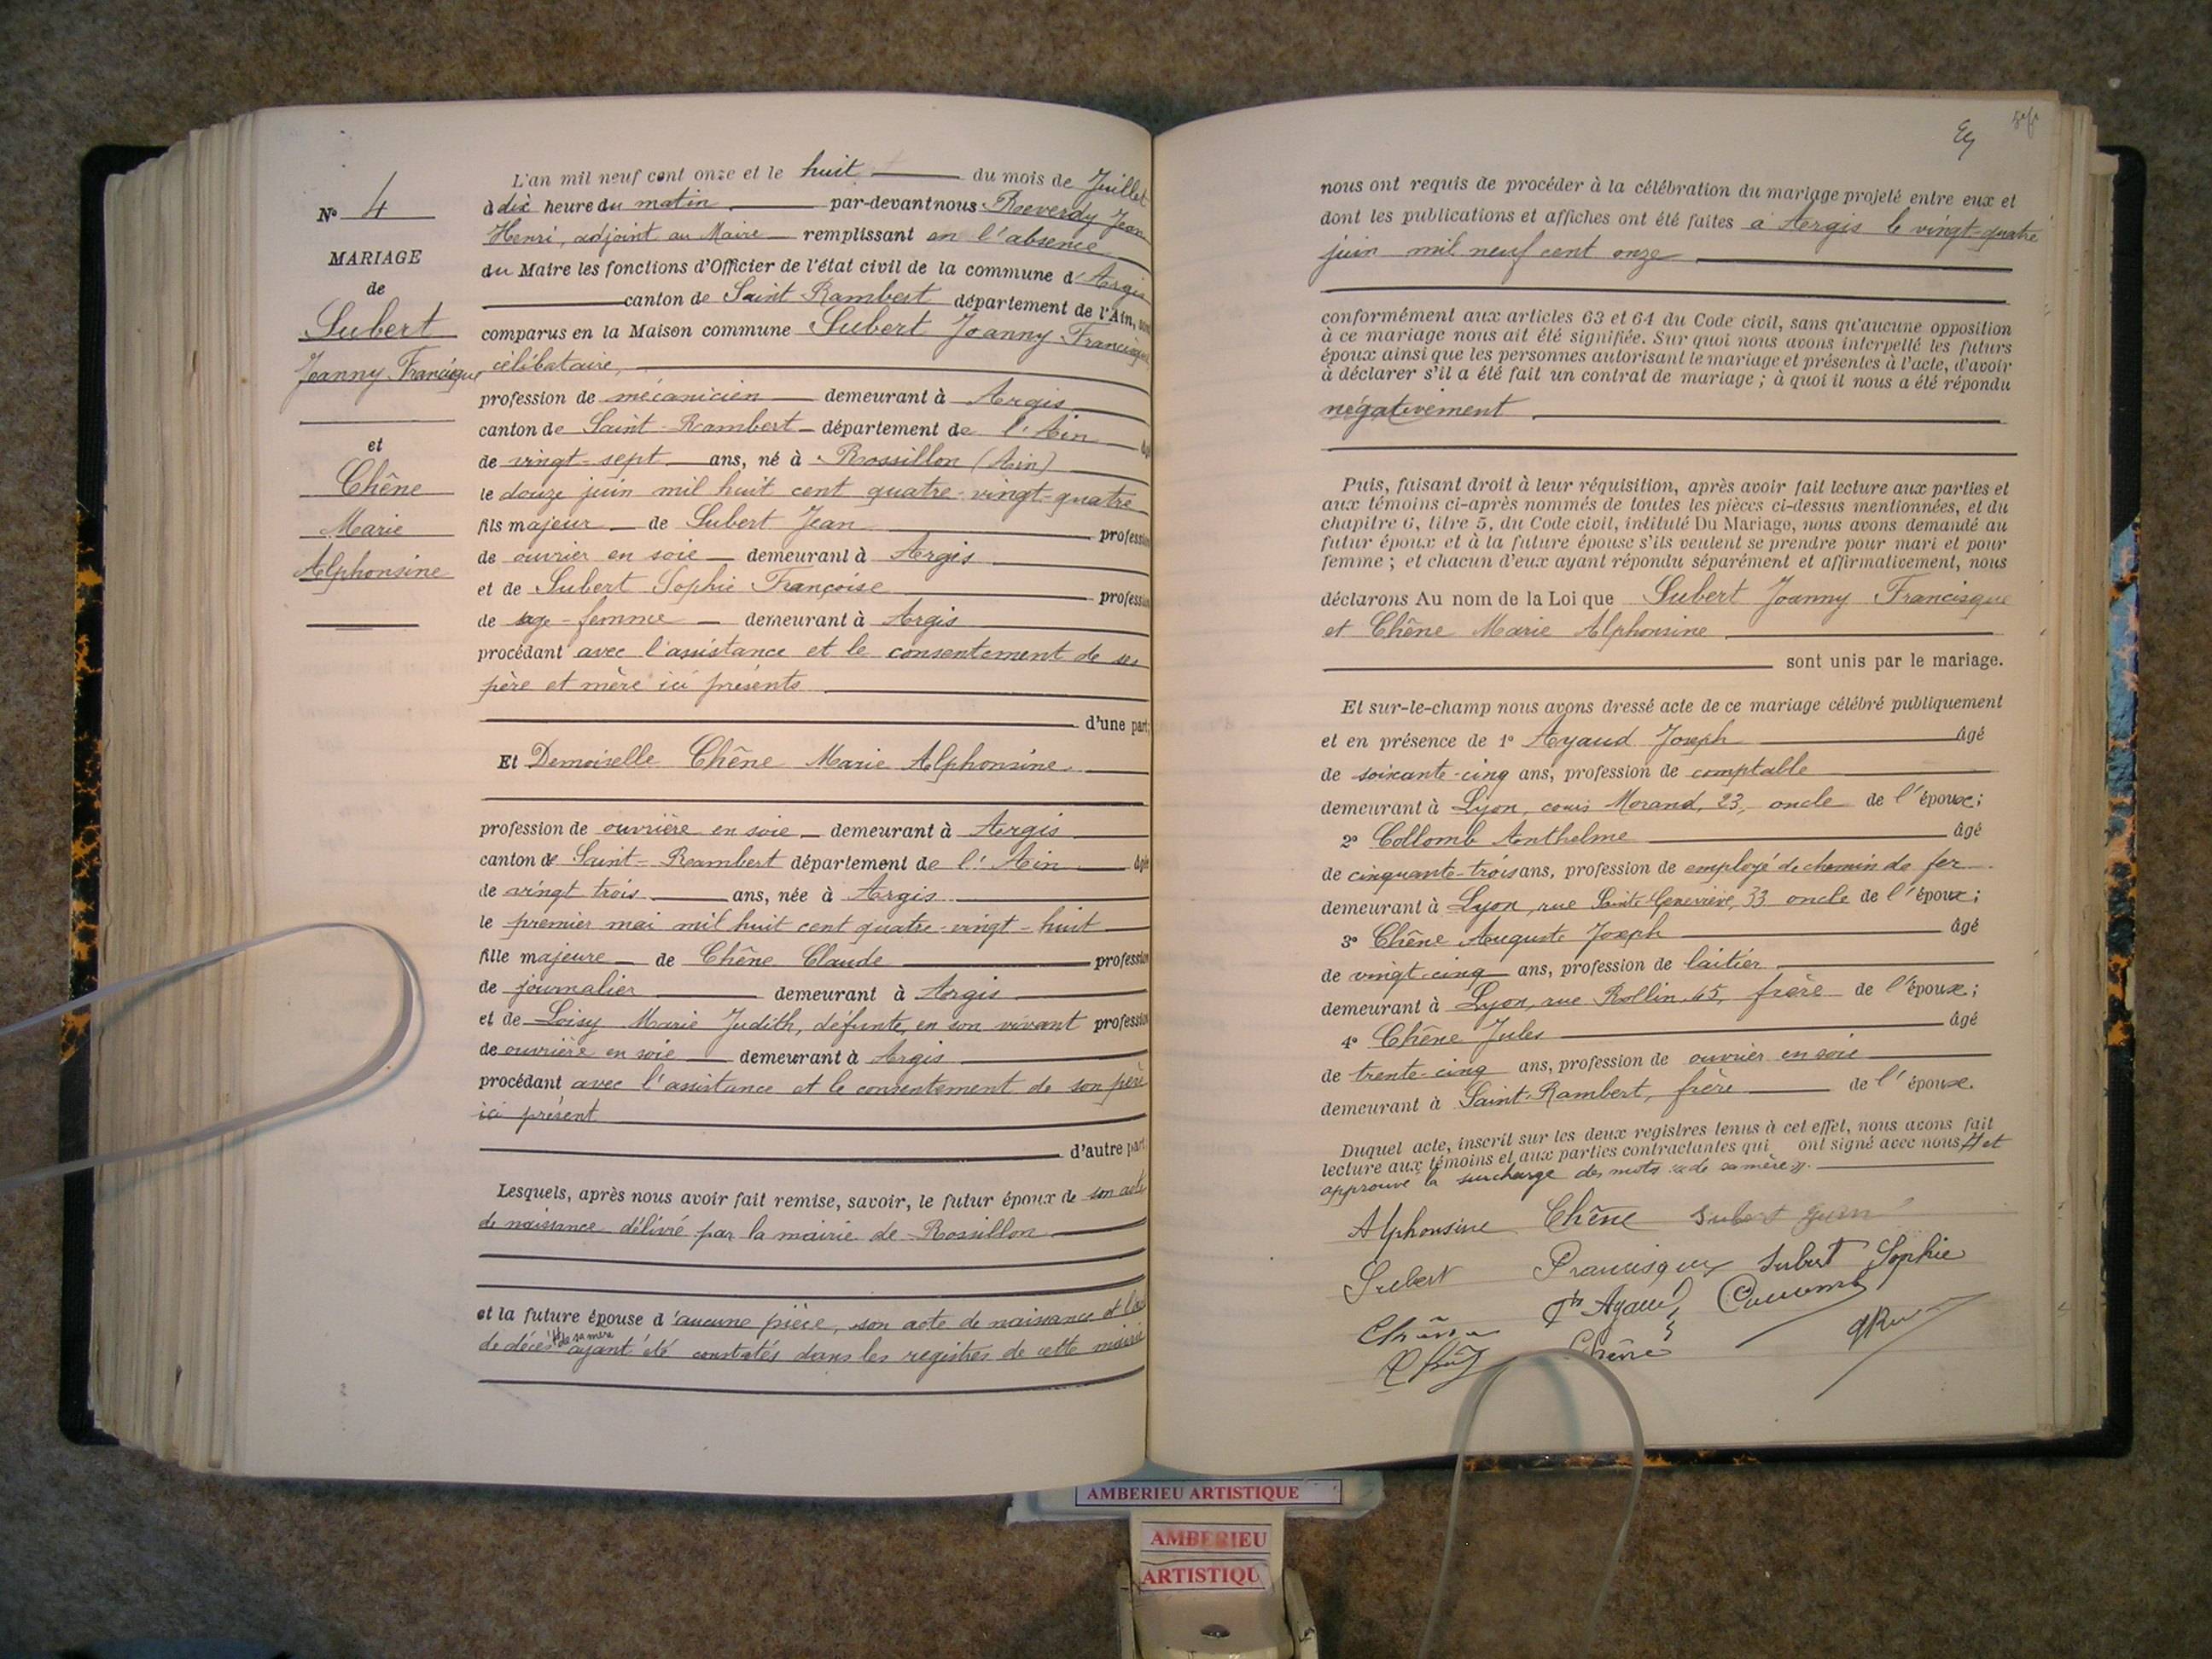 N° 4
MARIAGE
de
Subert
Joanny Francisque
et
Chêne
Marie
Alphonsine
L'an mil neuf cent onze et le huit du mois de Juillet
à dix heure du matin par-devant nous Reverdy Jean
Henri, adjoint au Maire remplissant en l'absence
du Maire les fonctions d'Officier de l'état civil de la commune d'Argis
canton de Saint-Rambert département de l'Ain, sont
comparus en la Maison commune Subert Joanny Francisque
célibataire,
profession de mécanicien demeurant à Argis
canton de Saint-Rambert département de l'Ain âgé
de vingt-sept ans, né à Rossillon (Ain)
le douze juin mil huit cent quatre-vingt-quatre
fils majeur de Subert Jean profession
de ouvrier en soie demeurant à Argis
et de Subert Sophie Françoise profession
de sage-femme demeurant à Argis
procédant avec l'assistance et le consentement de ses
père et mère ici présents
d'une part;
Et Demoiselle Chêne Marie Alphonsine
profession de ouvrière en soie demeurant à Argis
canton de Saint-Rambert département de l'Ain âgée
de vingt trois ans, née à Argis
le premier mai mil huit cent quatre-vingt-huit
fille majeure de Chêne Claude profession
de journalier demeurant à Argis
et de Loisy Marie Judith, défunte, en son vivant profession
de ouvrière en soie demeurant à Argis
procédant avec l'assistance et le consentement de son père
ici présent
d'autre part.
Lesquels, après nous avoir fait remise, savoir, le futur époux de son acte
de naissance délivré par la mairie de Rossillon
et la future épouse d'aucune pièce, son acte de naissance et l'acte
de décès de sa mère ayant été constatés dans les registres de cette mairie
nous ont requis de procéder à la célébration du mariage projeté entre eux et
dont les publications et affiches ont été faites à Argis le vingt-quatre
juin mil neuf cent onze
conformément aux articles 63 et 64 du Code civil, sans qu'aucune opposition
à ce mariage nous ait été signifiée. Sur quoi nous avons interpellé les futurs
époux ainsi que les personnes autorisant le mariage et présentes à l'acte, d'avoir
à déclarer s'il a été fait un contrat de mariage ; à quoi il nous a été répondu
négativement
Puis, faisant droit à leur réquisition, après avoir fait lecture aux parties et
aux témoins ci-après nommés de toutes les pièces ci-dessus mentionnées, et du
chapitre 6, titre 5, du Code civil, intitulé Du Mariage, nous avons demandé au
futur époux et à la future épouse s'ils veulent se prendre pour mari et pour
femme ; et chacun d'eux ayant répondu séparément et affirmativement, nous
déclarons Au nom de la Loi que Subert Joanny Francisque
et Chêne Marie Alphonsine
sont unis par le mariage.
Et sur-le-champ nous avons dressé acte de ce mariage célébré publiquement
et en présence de 1° Ayaud Joseph âgé
de soixante-cinq ans, profession de comptable
demeurant à Lyon, cours Morand, 23, oncle de l'époux;
2° Collomb Anthelme âgé
de cinquante-trois ans, profession de employé de chemin de fer
demeurant à Lyon, rue Sainte Geneviève, 33 oncle de l'époux;
3° Chêne Auguste Joseph âgé
de vingt-cinq ans, profession de laitier
demeurant à Lyon, rue Rollin 45, frère de l'épouse;
4° Chêne Jules âgé
de trente-cinq ans, profession de ouvrier en soie
demeurant à Saint-Rambert, frère de l'épouse.
Duquel acte, inscrit sur les deux registres tenus à cet effet, nous avons fait
lecture aux témoins et aux parties contractantes qui ont signé avec nous et
approuvé la surcharge des mots «de sa mère».
Alphonsine Chêne Subert
Subert Francisque Subert Sophie
Ayaud
Chêne
AMBERIEU ARTISTIQUE
AMBERIEU
ARTISTIQU